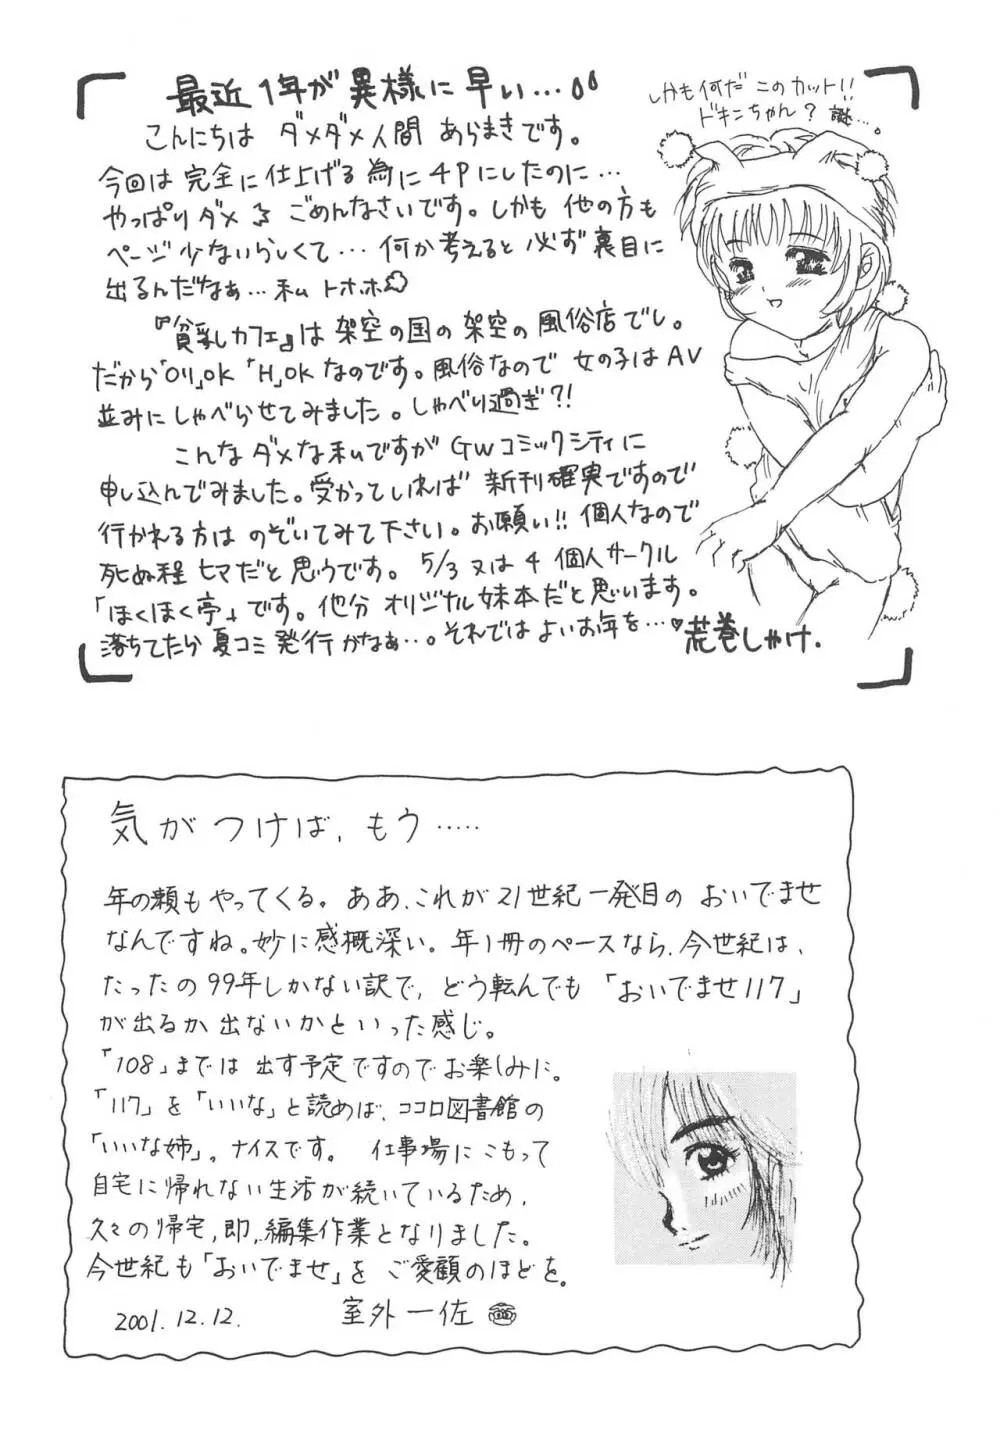 最近1年が異様に早い…
しかも何だ このカット!!
ドキンちゃん? 謎…。
こんにちは ダメダメ人間 あらまきです。
今回は 完全に仕上げる為に4Pにしたのに…
やっぱりダメ ごめんなさいです。しかも 他の方も
ページ少ないらしくて… 何か考えると 必ず裏目に
出るんだなぁ…私 トホホ
『貧乳カフェ』は架空の国の架空の風俗店でし。
だから「ロリ」OK「H」OKなのです。風俗なので 女の子はAV
並みにしゃべらせてみました。しゃべり過ぎ?!
こんなダメな私ですが GWコミックシティに
申し込んでみました。受かっていれば 新刊確実ですので
行かれる方は のぞいてみて下さい。お願い!! 個人なので
死ぬ程ヒマだと思うです。 5/3又は4 個人サークル
「ほくほく亭」です。他分 オリジナル妹本だと思います。
落ちてたら 夏コミ発行かなぁ…。それでは よいお年を…♥荒巻しゃけ.
気がつけば、もう……
年の瀬もやってくる。ああ、これが21世紀一発目の おいでませ
なんですね。妙に感慨深い。年1冊のペースなら、今世紀は、
たったの99年しかない訳で、どう転んでも「おいでませ117」
が出るか出ないかといった感じ。
「108」までは 出す予定ですのでお楽しみに。
「117」を「いいな」と読めば、ココロ図書館の
「いいな姉」。ナイスです。 仕事場にこもって
自宅に帰れない生活が続いているため、
久々の帰宅、即、編集作業となりました。
今世紀も「おいでませ」を ご愛顧のほどを。
2001.12.12. 室外一佐